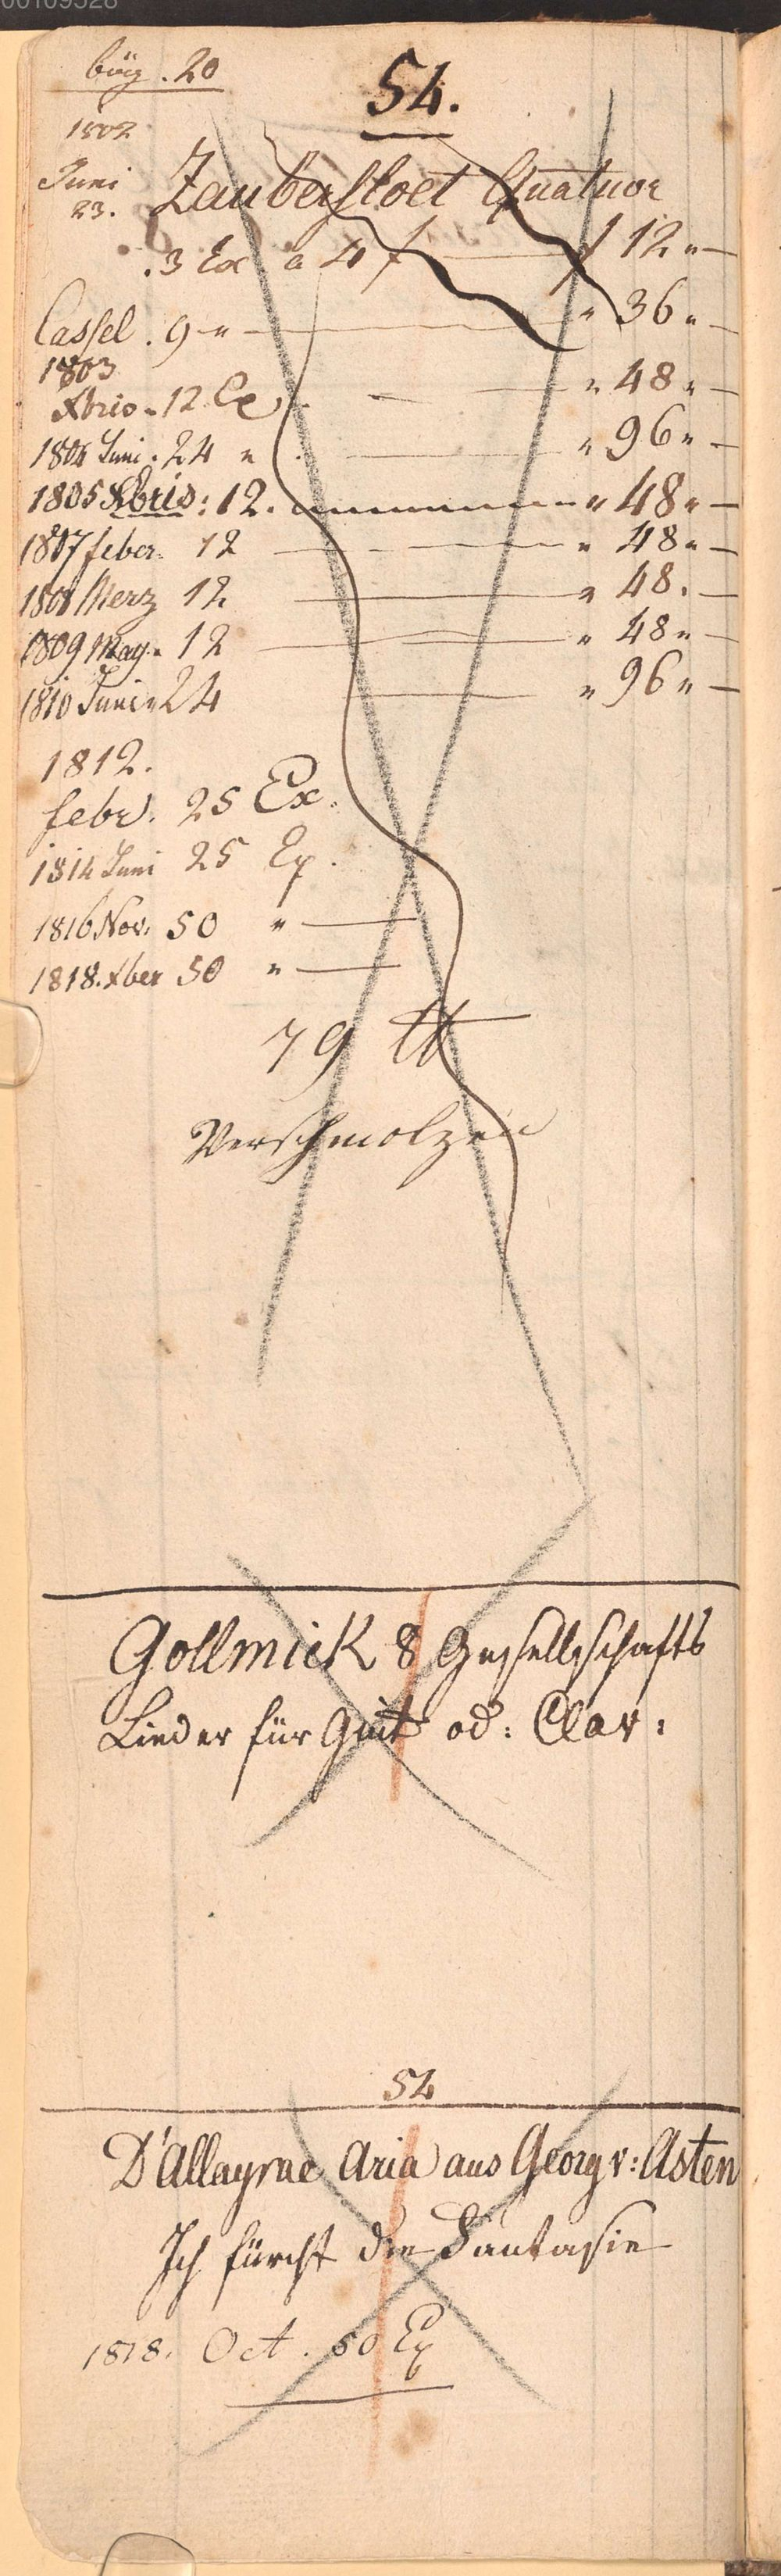 00109528
büg. 20
54.
1802
Juni
23. Zauberfloet Quatuor
.3 Ex a 4 f — f 12 " —
Cassel . 9 " — " 36 " —
1803
Xbris . 12 Ex — " 48 " —
1804 Juni . 24 " — " 96 " —
1805 Xbris : 12 . — " 48 " —
1807 feber . 12 — " 48 " —
1808 Merz 12 — " 48 . —
1809 May . 12 — " 48 " —
1810 Juni " 24 — " 96 " —
1812.
febr. 25 Ex.
1814 Juni 25 Ex.
1816 Nov. 50 " —
1818. Xber 50 " —
79 tt
Verschmolzen
Gollmick 8 Gesellschafts
Lieder für Guit od: Clav:
52
D'Allayrac Aria aus Georg v: Asten
Ich fürcht die Fantasie
1818. Oct. 50 Ex